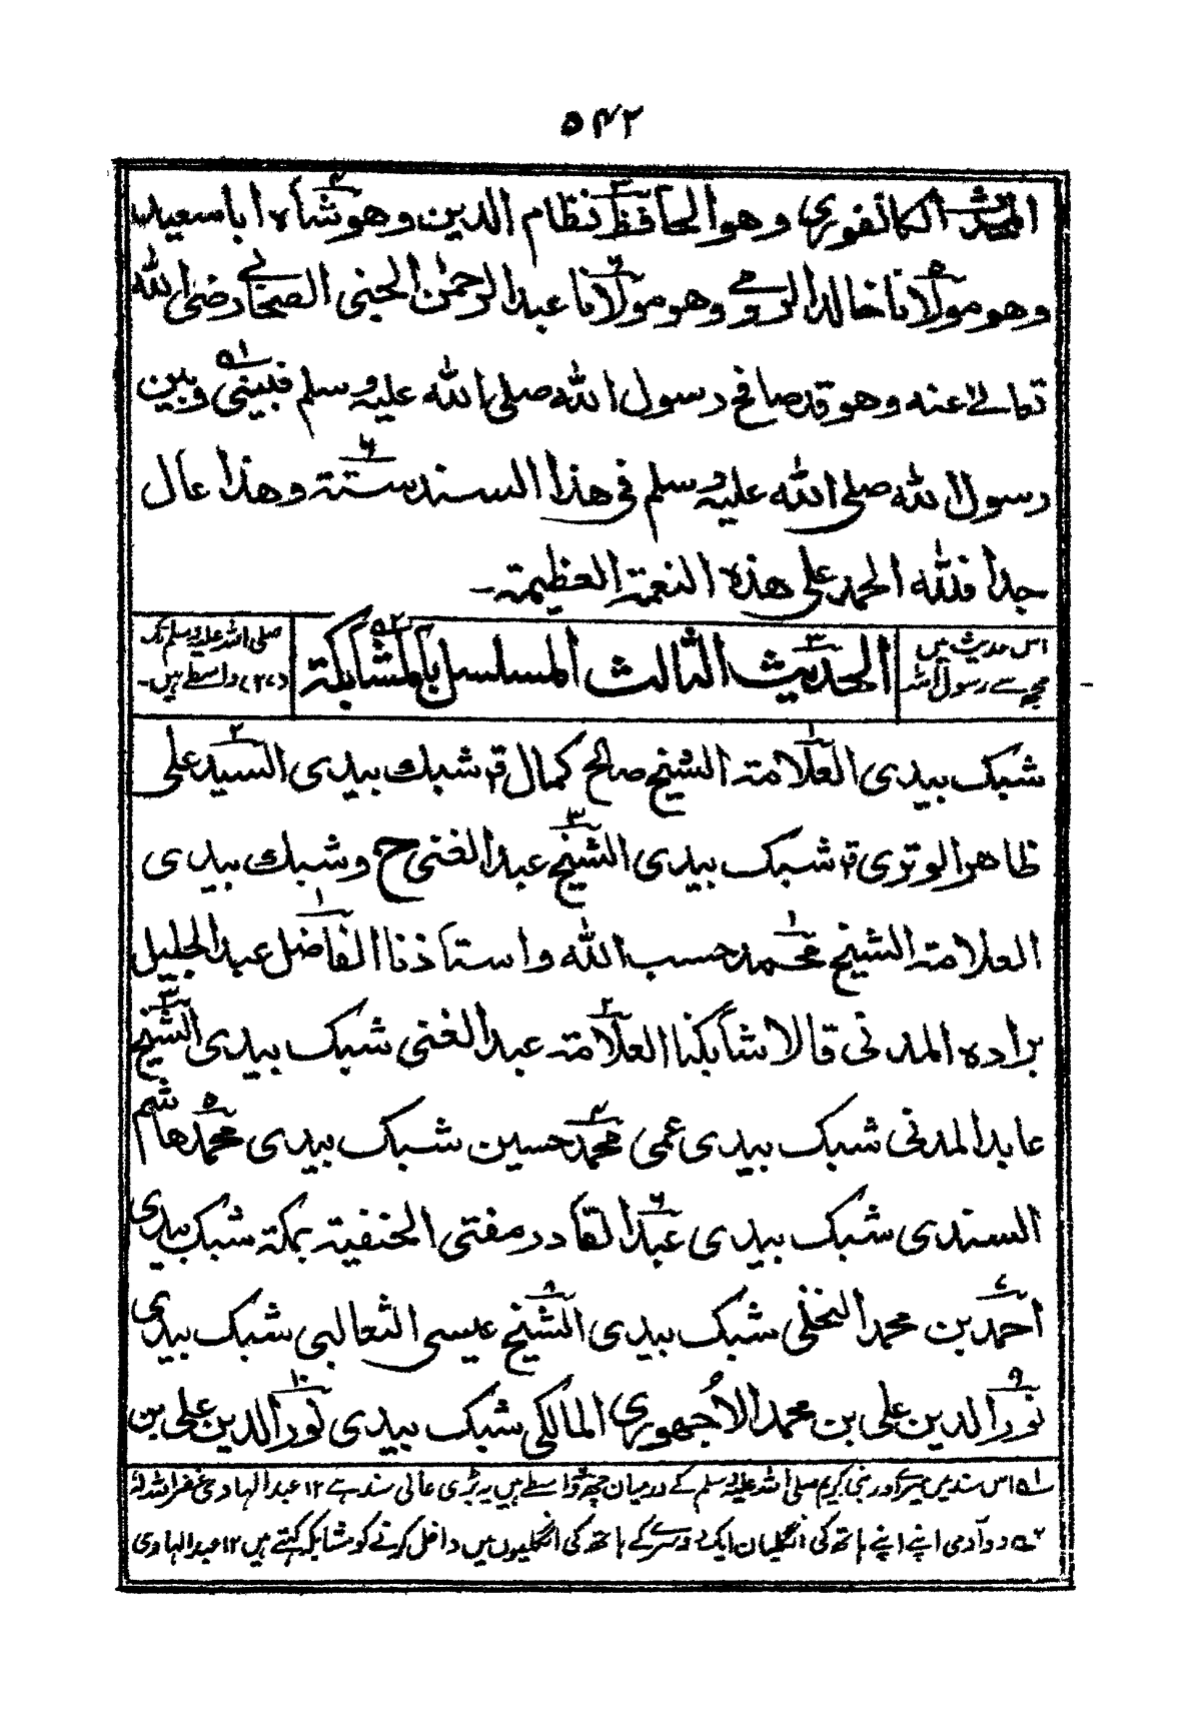 ۵۴۲
المحدث الكانفوری وهو الحافظ۳ نظام الدين وهو شاه۴ ابا سعيد
وهو مولانا۵ خالد الرومے وهو مولانا۶ عبد الرحمٰن الجنی الصحابے رضی الله
تعالےٰ عنه وهو قد صافح رسول الله صلی الله عليه وسلم فبينی۱؎ وبين
رسول الله صلی الله عليه وسلم فی هذا السند ستة۶ وهذا عال
جداً فلله الحمد علی هذه النعمة العظيمة۔
اس حدیث میں
مجھ سے رسول اللہ
الحديث۳ الثالث المسلسل بالمشابكة۲؎
صلی اللہ علیہ وسلم تک
(۲۷) واسطے ہیں۔
شبك بيدی العلامة۱ الشيخ صالح كمال ق شبك بيدی السيد۲ علی
ظاهر الوتری ق شبك بيدی الشيخ۳ عبد الغنی ح وشبك بيدی
العلامة الشيخ محمد۱ حسب الله واستاذنا الفاضل۱ عبد الجليل
براده المدنی قالا شابكنا العلامة۲ عبد الغنی شبك بيدی الشيخ۳
عابد المدنی شبك بيدی عمی محمد۴ حسين شبك بيدی محمد۵ هاشم
السندی شبك بيدی عبد۶ القادر مفتی الحنفية بمكة شبك بيدی
احمد۷ بن محمد النخلی شبك بيدی الشيخ۸ عيسی الثعالبی شبك بيدی
نور۹ الدين علی بن محمد الأجهوری المالكی شبك بيدی نور۱۰ الدين علی بن
۱؎ اس سند میں میرے اور نبی کریم صلی اللہ علیہ وسلم کے درمیان چھ واسطے ہیں یہ بڑی عالی سند ہے ۱۲ عبد الہادی غفر اللہ لہ
۲؎ دو آدمی اپنے اپنے ہاتھ کی انگلیاں ایک دوسرے کے ہاتھ کی انگلیوں میں داخل کرنے کو مشابکہ کہتے ہیں ۱۲ عبد الہادی